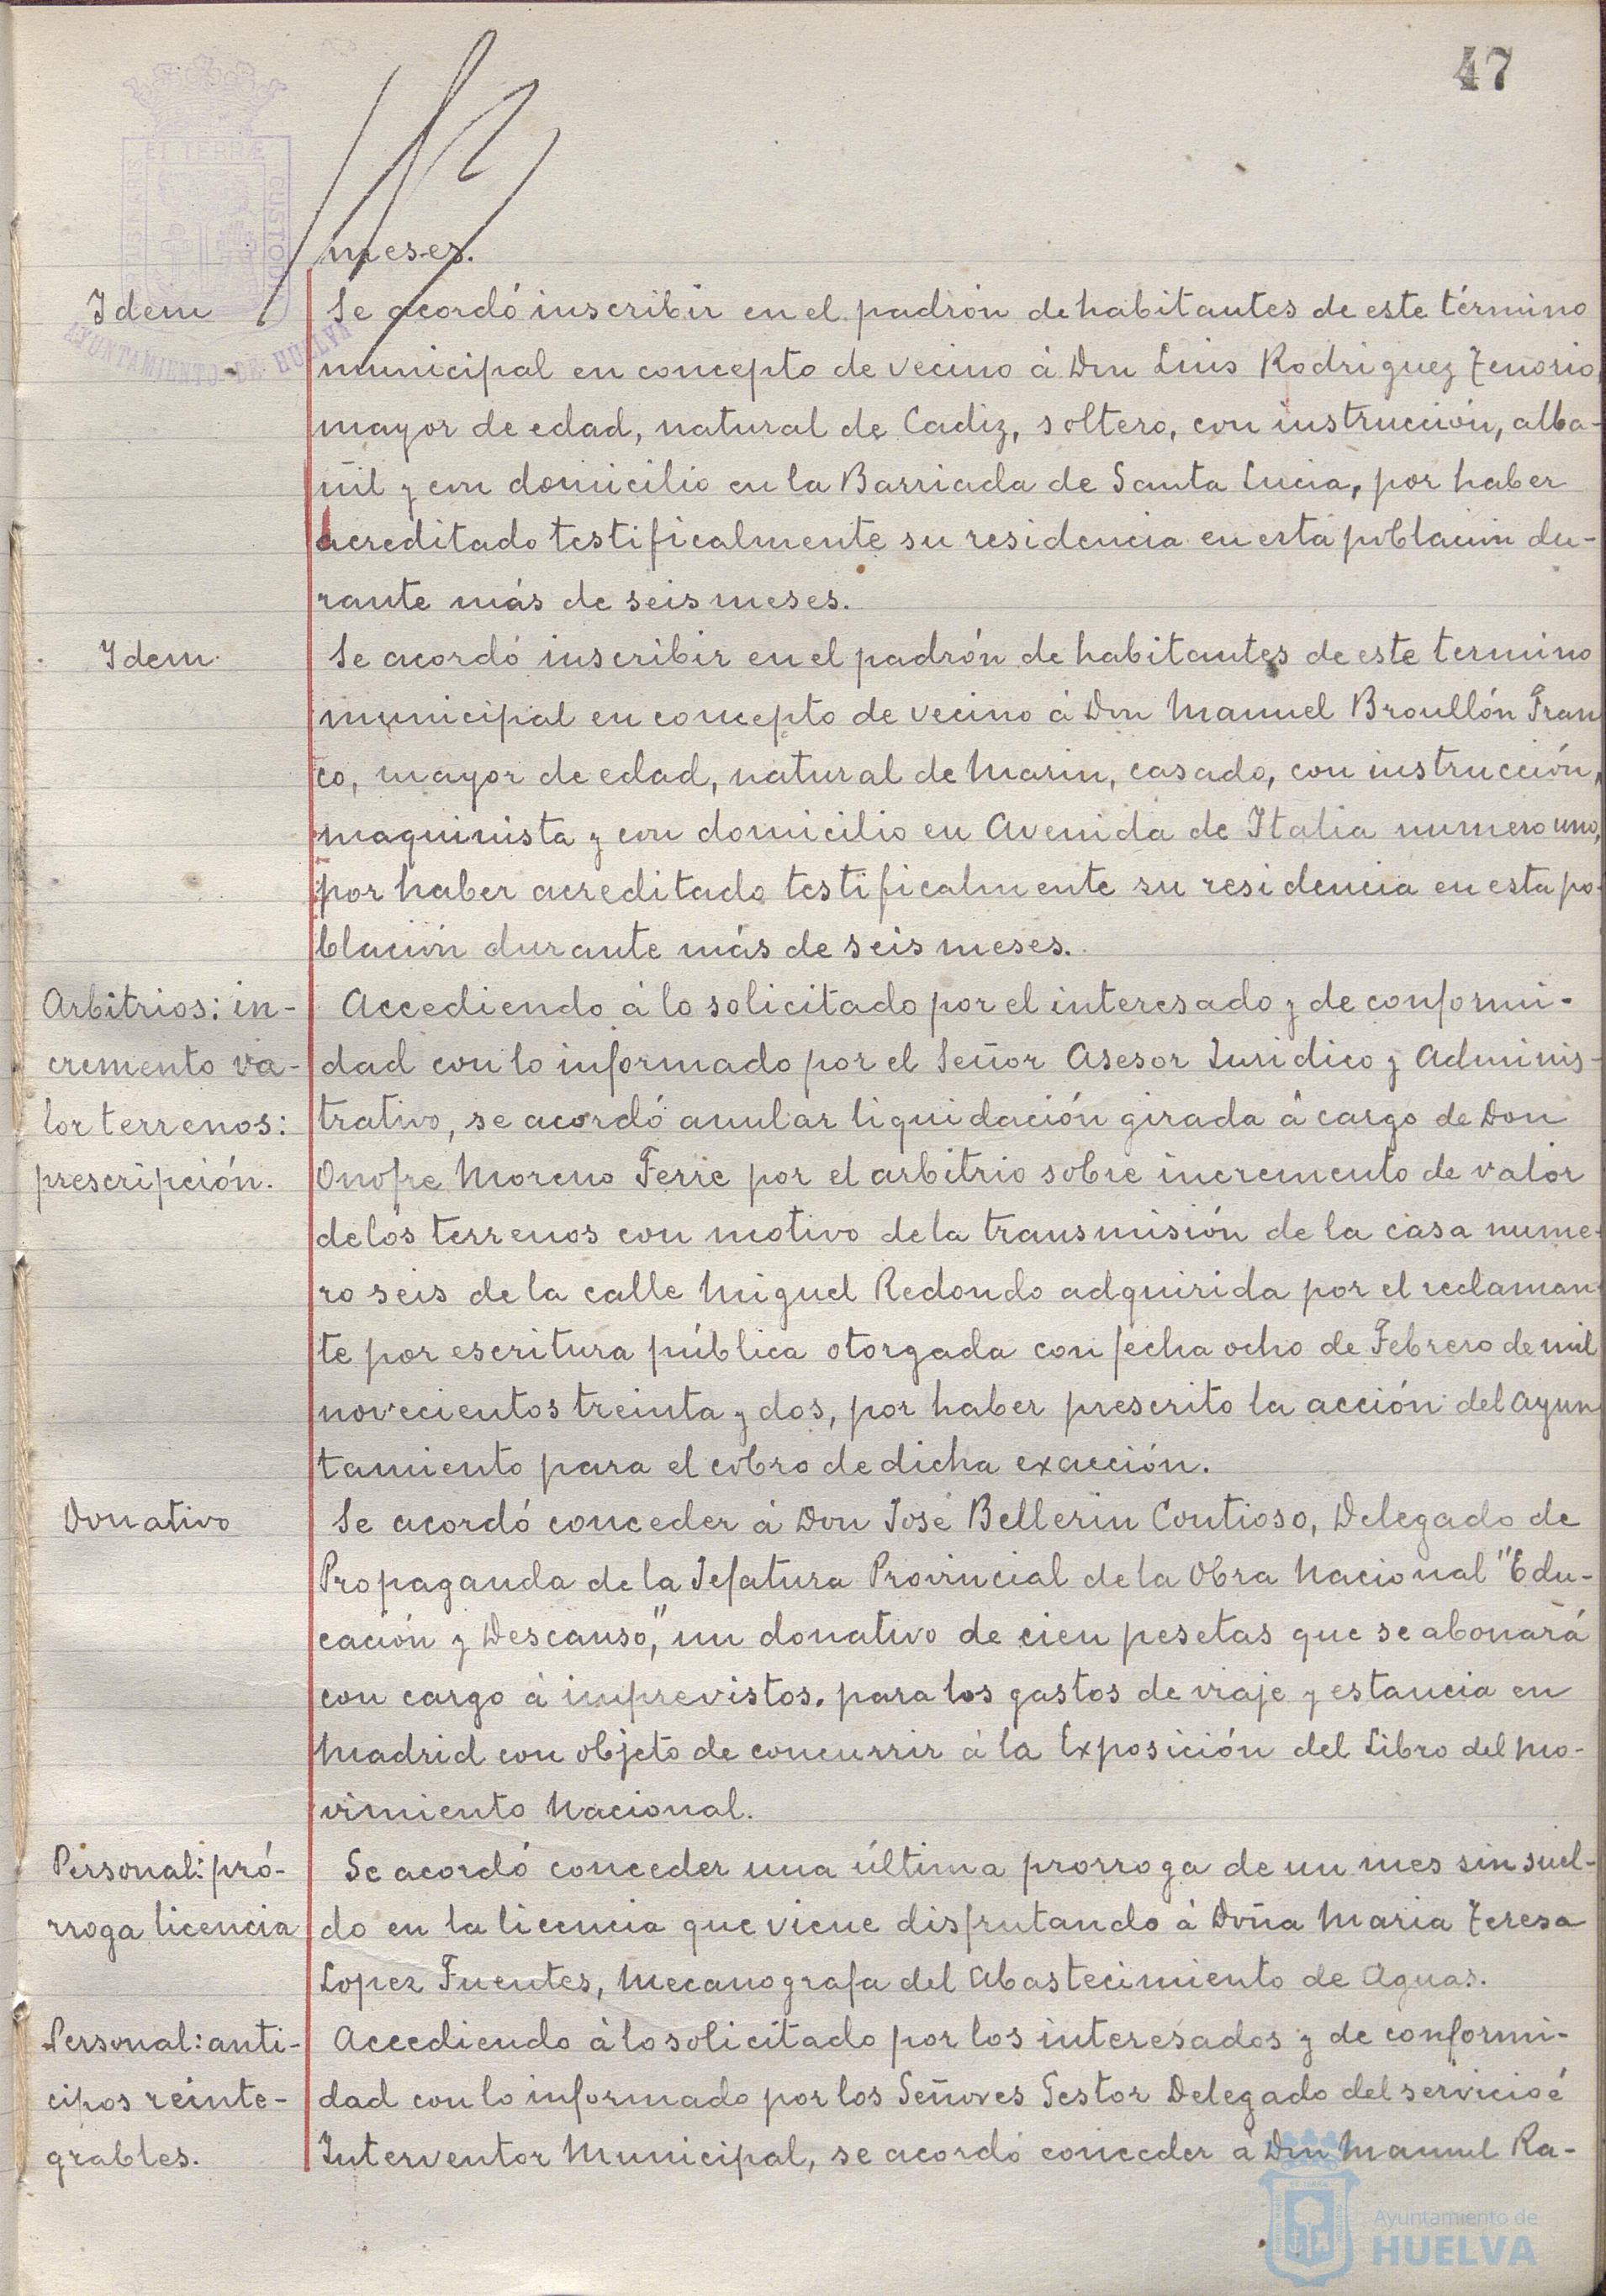 47
meses.
Idem
Se acordó inscribir en el padrón de habitantes de este término
municipal en concepto de vecino á Don Luis Rodriguez Tenorio,
mayor de edad, natural de Cadiz, soltero, con instrucción, alba-
ñil y con domicilio en la Barriada de Santa Lucia, por haber
acreditado testificalmente su residencia en esta población du-
rante más de seis meses.
Idem.
Se acordó inscribir en el padrón de habitantes de este termino
municipal en concepto de vecino á Don Manuel Broullón Fran
co, mayor de edad, natural de Marin, casado, con instrucción,
maquinista y con domicilio en Avenida de Italia numero uno,
por haber acreditado testificalmente su residencia en esta po-
blación durante más de seis meses.
Arbitrios: in-
cremento va-
lor terrenos:
prescripción.
Accediendo á lo solicitado por el interesado y de conformi-
dad con lo informado por el Señor Asesor Juridico y Adminis-
trativo, se acordó anular liquidación girada á cargo de Don
Onofre Moreno Ferre por el arbitrio sobre incremento de valor
de los terrenos con motivo de la transmisión de la casa nume-
ro seis de la calle Miguel Redondo adquirida por el reclaman-
te por escritura pública otorgada con fecha ocho de Febrero de mil
novecientos treinta y dos, por haber prescrito la acción del Ayun
tamiento para el cobro de dicha exacción.
Donativo
Se acordó conceder á Don José Bellerin Contioso, Delegado de
Propaganda de la Jefatura Provincial de la Obra Nacional "Edu-
cación y Descanso," un donativo de cien pesetas que se abonará
con cargo á imprevistos. para los gastos de viaje y estancia en
Madrid con objeto de concurrir á la Exposición del Libro del Mo-
vimiento Nacional.
Personal: pró-
rroga licencia
Se acordó conceder una última prorroga de un mes sin suel-
do en la licencia que viene disfrutando á Doña Maria Teresa
Lopez Fuentes, Mecanografa del Abastecimiento de Aguas.
Personal: anti-
cipos reinte-
grables.
Accediendo á lo solicitado por los interesados y de conformi-
dad con lo informado por los Señores Gestor Delegado del servicio é
Interventor Municipal, se acordó conceder á Don Manuel Ra-
AYUNTAMIENTO DE HUELVA
Ayuntamiento de
HUELVA